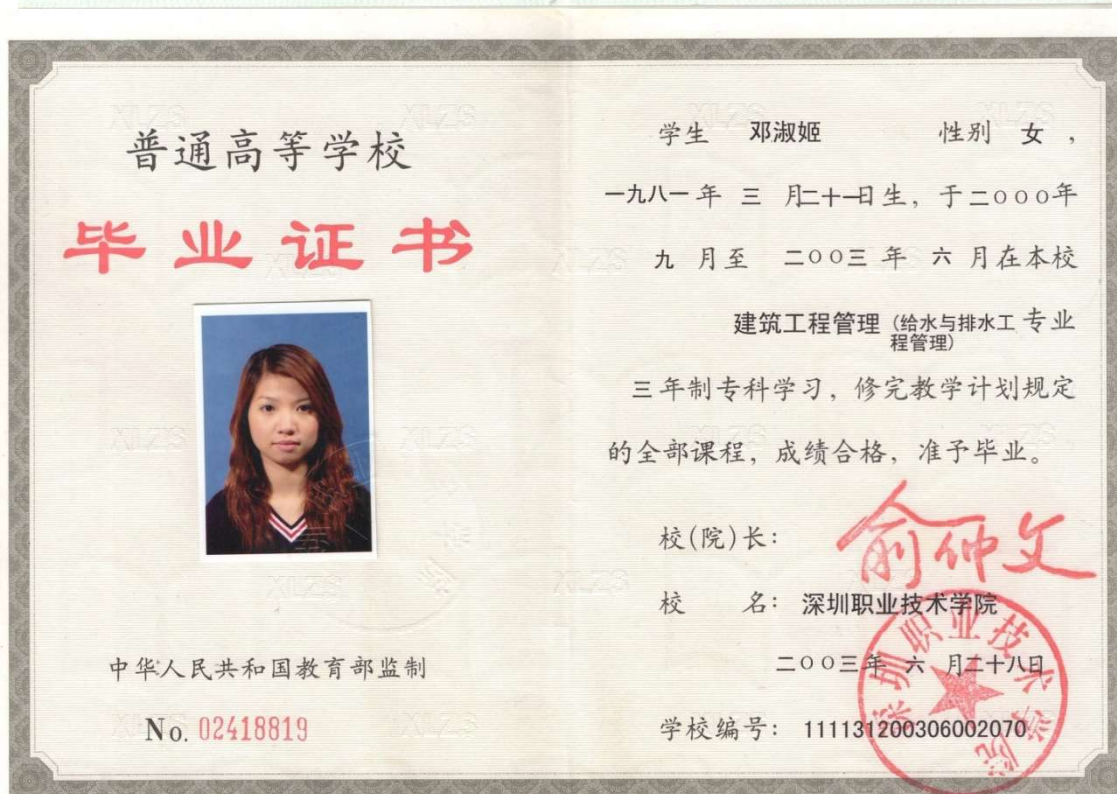 普通高等学校
毕业证书
中华人民共和国教育部监制
No. 02418819
学生 邓淑姬 性别 女，
一九八一年 三 月二十一日生，于二〇〇〇年
九 月至 二〇〇三 年 六 月在本校
建筑工程管理（给水与排水工程管理）专业
三年制专科学习，修完教学计划规定
的全部课程，成绩合格，准予毕业。
校(院)长： 俞仲文
校 名： 深圳职业技术学院
二〇〇三年 六 月二十八日
学校编号： 111131200306002070
深圳职业技术学院
XLZS